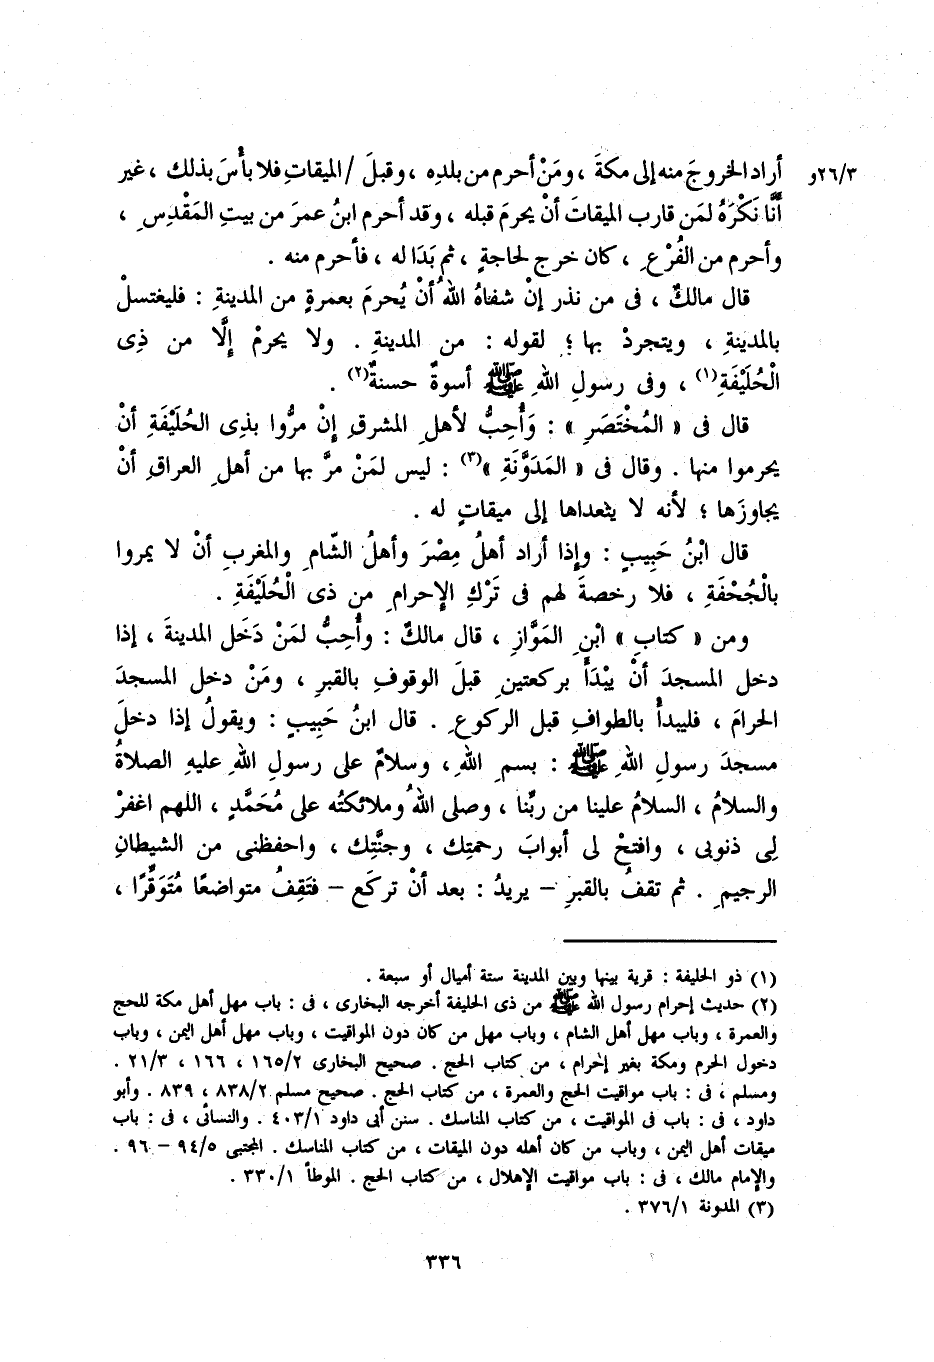 أراد الخروجَ منه إلى مكةَ ، ومَنْ أحرم من بلدِه ، وقبلَ / الميقاتِ فلا بأْسَ بذلك ، غير ٢٦/٣و
أَنَّا نَكْرَهُ لمَن قارب الميقاتَ أنْ يحرمَ قبله ، وقد أحرم ابنُ عمرَ من بيتِ المَقْدِسِ ،
وأحرم من الفُرْعِ ، كان خرج لحاجةٍ ، ثم بَدَا له ، فأحرم منه .
قال مالكٌ ، فى من نذر إنْ شفاهُ اللهُ أنْ يُحرمَ بعمرةٍ من المدينةِ : فليغتسلْ
بالمدينةِ ، ويتجردْ بها ؛ لقوله : من المدينةِ . ولا يحرمْ إلَّا من ذِى
الْحُلَيْفَةِ(١) ، وفى رسولِ اللهِ ﷺ أسوةٌ حسنةٌ(٢) .
قال فى « المُخْتَصَرِ » : وَأُحِبُّ لأهلِ المشرقِ إنْ مرُّوا بذِى الحُلَيْفَةِ أنْ
يحرموا منها . وقال فى « المَدَوَّنَةِ »(٣) : ليس لمَنْ مرَّ بها من أهلِ العراقِ أنْ
يجاوزَها ؛ لأنه لا يتعداها إلى ميقاتٍ له .
قال ابْنُ حَبِيبٍ : وإذا أراد أهلُ مِصْرَ وأهلُ الشّامِ والمغربِ أنْ لا يمروا
بالْجُحْفَةِ ، فلا رخصةَ لهم فى تَرْكِ الإحرامِ من ذى الْحُلَيْفَةِ .
ومن « كتابِ » ابْنِ المَوَّازِ ، قال مالكٌ : وأُحِبُّ لمَنْ دَخَل المدينةَ ، إذا
دخل المسجدَ أنْ يبْدَأَ بركعتينِ قبلَ الوقوفِ بالقبرِ ، ومَنْ دخل المسجدَ
الحرامَ ، فليبدأْ بالطوافِ قبل الركوعِ . قال ابنُ حَبِيبٍ : ويقولُ إذا دخلَ
مسجدَ رسولِ اللهِ ﷺ : بسمِ اللهِ ، وسلامٌ على رسولِ اللهِ عليهِ الصلاةُ
والسلامُ ، السلامُ علينا من ربِّنا ، وصلى اللهُ وملائكتُه على مُحَمَّدٍ ، اللهم اغفرْ
لِى ذنوبى ، وافتحْ لى أبوابَ رحمتِك ، وجنَّتِك ، واحفظنى من الشيطانِ
الرجيمِ . ثم تقفُ بالقبرِ – يريدُ : بعد أنْ تركَع – فتَقِفُ متواضعًا مُتَوَقِّرًا ،
(١) ذو الحليفة : قرية بينها وبين المدينة ستة أميال أو سبعة .
(٢) حديث إحرام رسول الله ﷺ من ذى الحليفة أخرجه البخارى ، فى : باب مهل أهل مكة للحج
والعمرة ، وباب مهل أهل الشام ، وباب مهل من كان دون المواقيت ، وباب مهل أهل اليمن ، وباب
دخول الحرم ومكة بغير إحرام ، من كتاب الحج . صحيح البخارى ١٦٥/٢ ، ١٦٦ ، ٢١/٣ .
ومسلم ، فى : باب مواقيت الحج والعمرة ، من كتاب الحج . صحيح مسلم ٨٣٨/٢ ، ٨٣٩ . وأبو
داود ، فى : باب فى المواقيت ، من كتاب المناسك . سنن أبى داود ٤٠٣/١ . والنسائى ، فى : باب
ميقات أهل اليمن ، وباب من كان أهله دون الميقات ، من كتاب المناسك . المجتبى ٩٤/٥ – ٩٦ .
والإمام مالك ، فى : باب مواقيت الإهلال ، من كتاب الحج . الموطأ ٣٣٠/١ .
(٣) المدونة ٣٧٦/١ .
٣٣٦